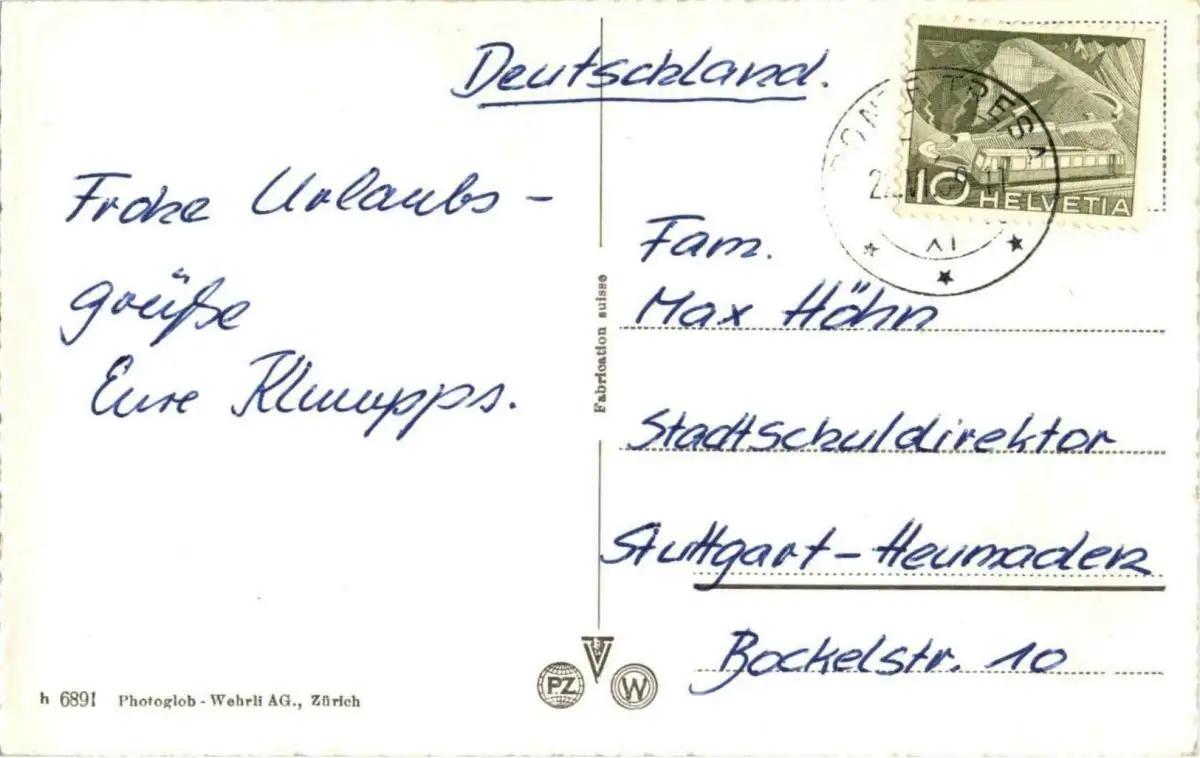 Deutschland.
Frohe Urlaubs-
grüße
Eure Klumpps.
Fam.
Max Höhn
Stadtschuldirektor
Stuttgart-Heumaden
Bockelstr. 10
PONTE TRESA
XI
10 HELVETIA
Fabrication suisse
PZ
W
h 6891 Photoglob-Wehrli AG., Zürich